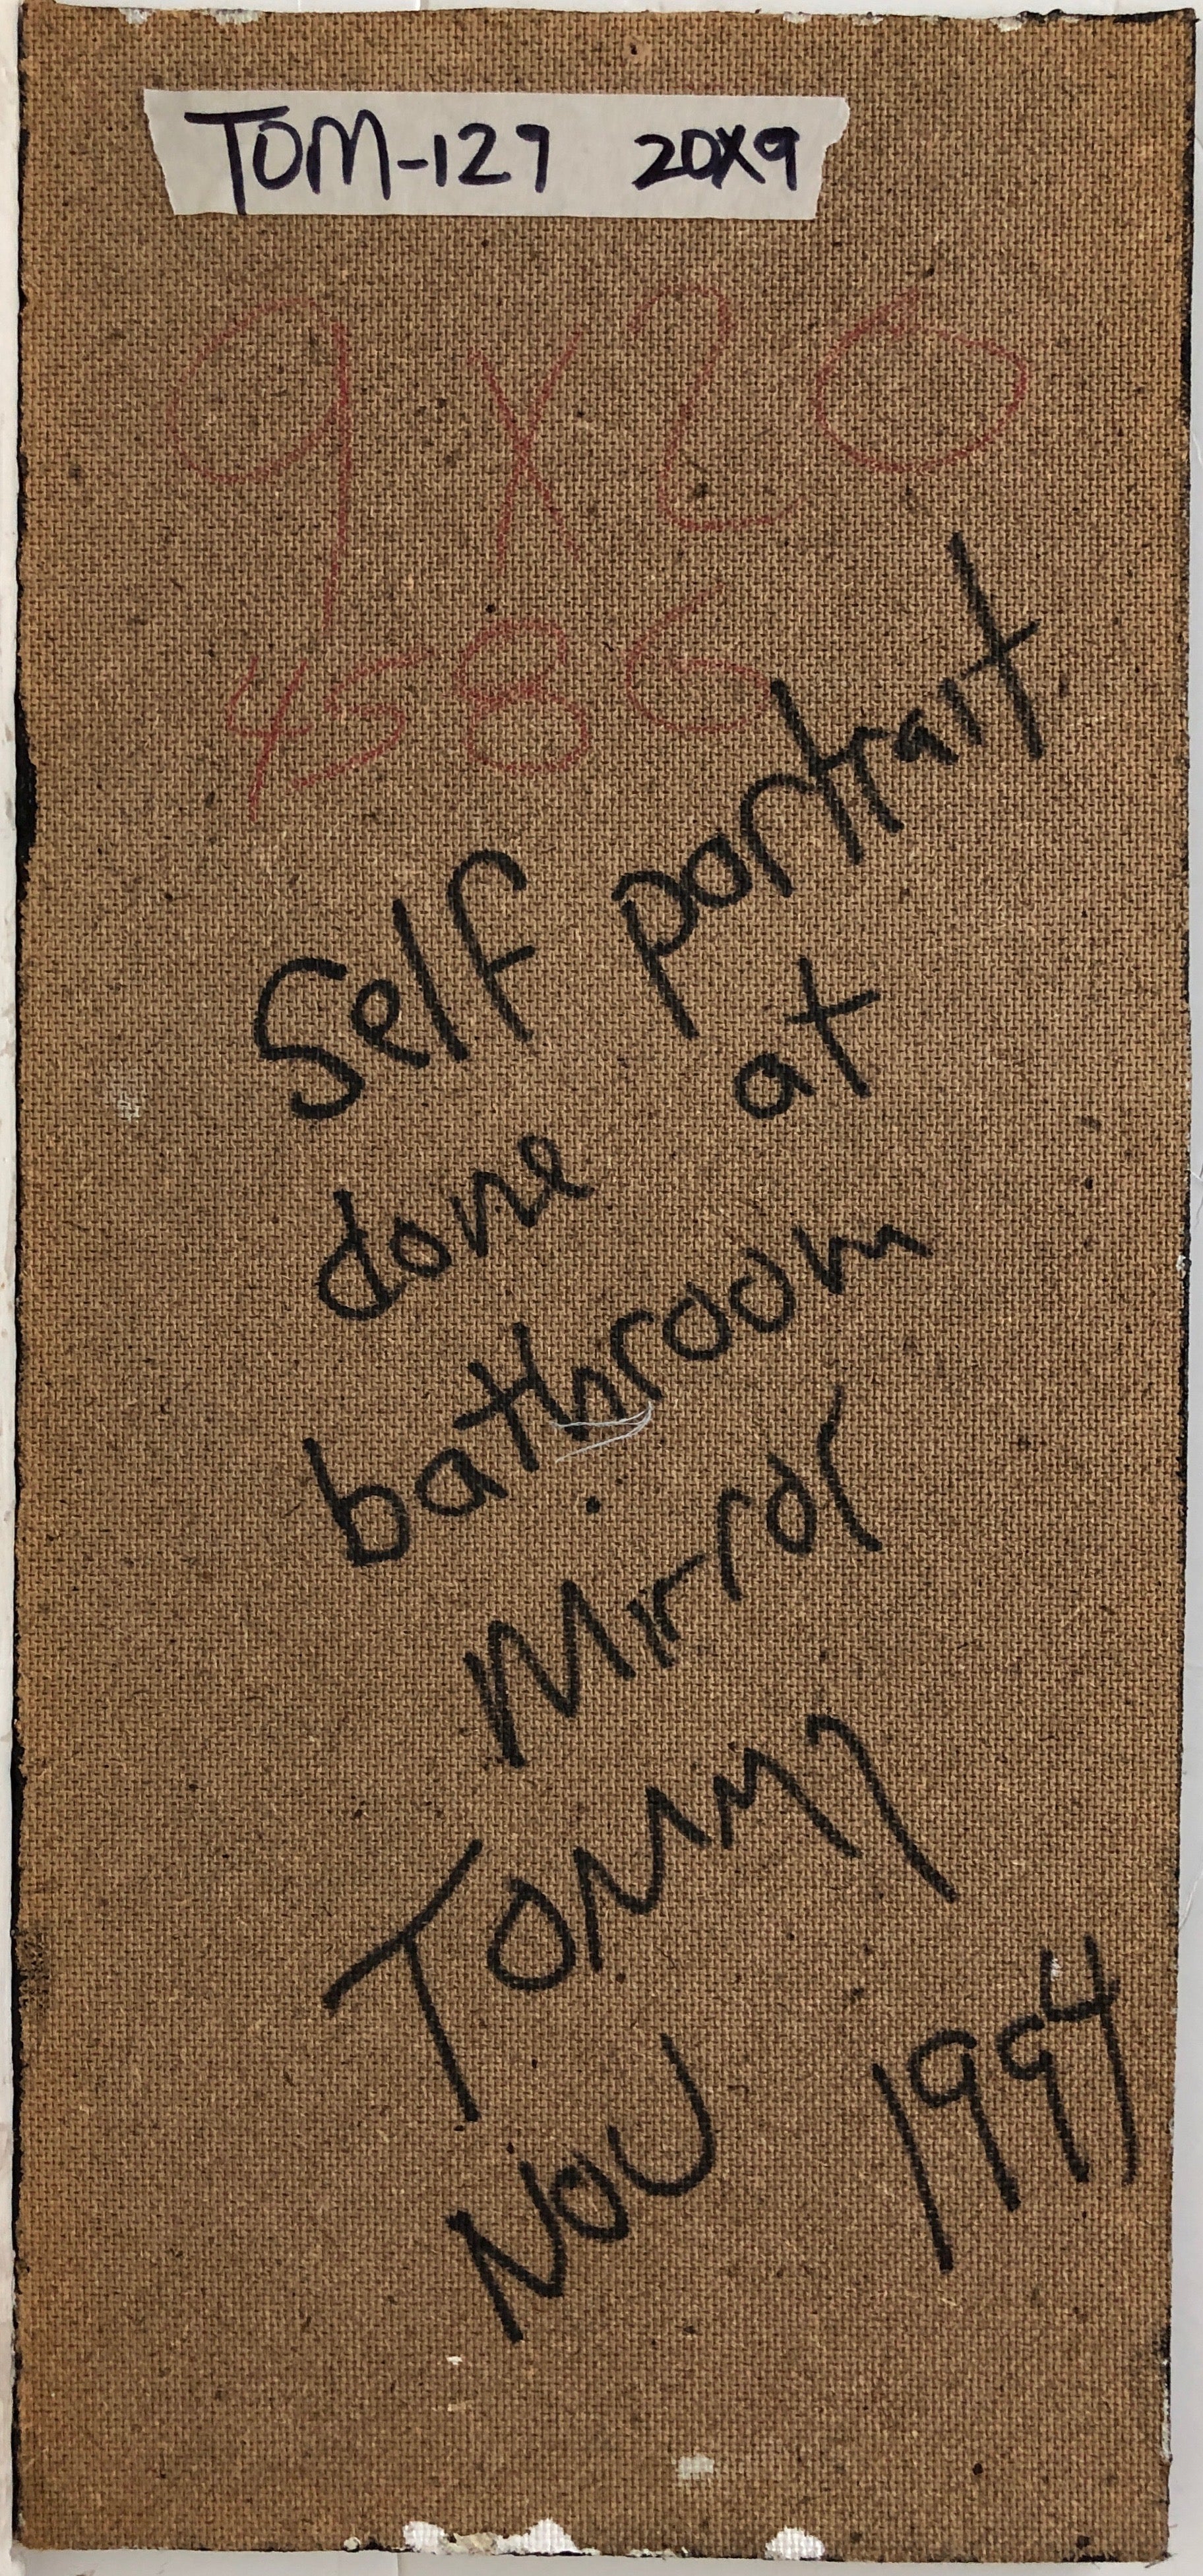 TOM-127 20X9
9 X 20
4586
Self portrait
done at
bathroom
Mirror
Tommy
NOV 1994